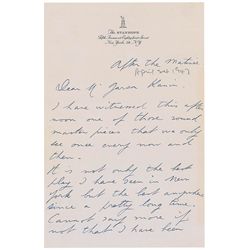 The STANHOPE
Fifth Avenue at Eighty-first Street
New York 28, N.Y.
After the Matinee
April 2nd 1947
Dear Mr Garson Kanin.
I have witnessed this after
noon one of those sound
master pieces that we only
see once every now and
then.
It is not only the best
play I have seen in New
York but the best anywhere
since a pretty long time.
Cannot say more if
not that I have been